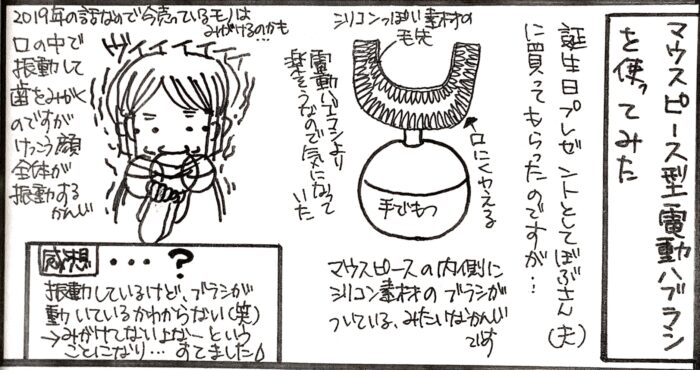 マウスピース型電動ハブラシ
を使ってみた
誕生日プレゼントとしてぼぶさん(夫)
に買ってもらったのですが…
シリコンっぽい素材の
毛先
←口にくわえる
手でもつ
電動ハブラシより
楽そうなので気になって
いた
マウスピースの内側に
シリコン素材のブラシが
ついている、みたいなかんじ
です
2019年の話なので今売っているモノは
みがけるのかも
…
ヴィィィィ
口の中で
振動して
歯をみがく
のですが
けっこう顔
全体が
振動する
かんじ
感想 …?
振動しているけど、ブラシが
動いているかわからない(笑)
→みがけてないよなーという
ことになり…すてました